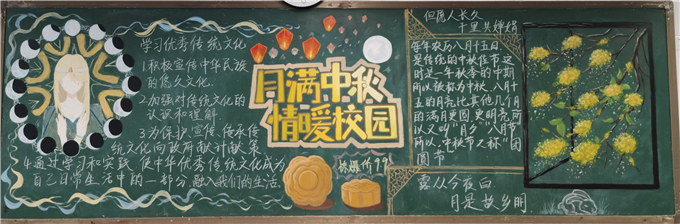 学习优秀传统文化
1.积极宣传中华民族
的悠久文化.
2.加强对传统文化的
认识和理解
3.为保护、宣传、传承传
统文化向政府献计献策
4.通过学习和实践,使中华优秀传统文化成为
自己日常生活中的一部分,融入我们的生活.
月满中秋
情暖校园
但愿人长久
千里共婵娟
每年农历八月十五日
是传统的中秋佳节这
时是一年秋季的中期
所以被称为中秋.八月十
五的月亮比其他几个月
的满月更圆,更明亮,所
以又叫"月夕""八月节"
所以,中秋节又称"团
圆节
露从今夜白
月是故乡明